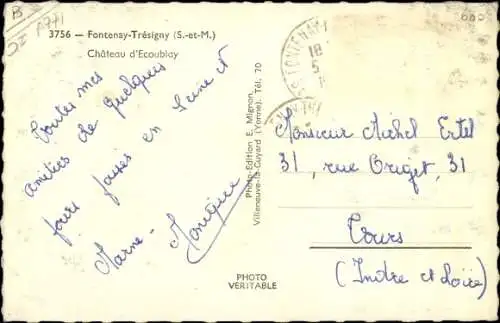 3756 – Fontenay-Trésigny (S.-et-M.)
Château d'Ecoublay
Toutes mes
amitiés de quelques
jours passés en Seine et
Marne -
Monique
Photo-Edition E. Mignon
Villeneuve-la-Guyard (Yonne) Tél. 70
PHOTO
VÉRITABLE
FONTENAY
18
5
Monsieur Michel Ertel
31, rue Origet, 31
Tours
(Indre et Loire)